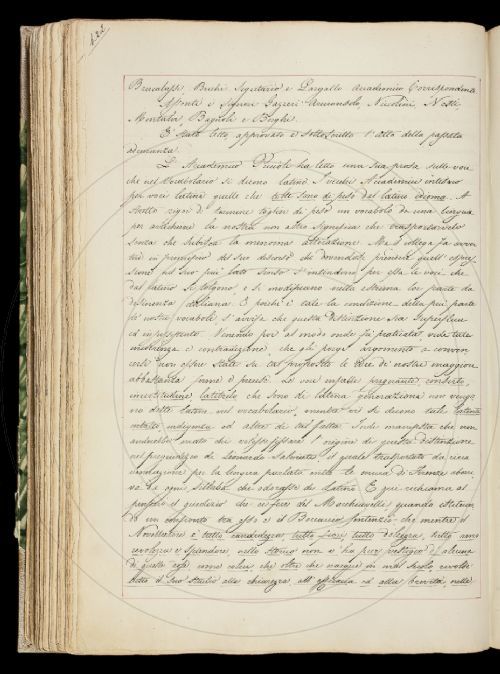 422
Brucalassi, Becchi Segretario e Targallo Accademico Corrispondente
Assenti i Signori Gazzeri Niccolini, Nesti,
Montalvi, Bagnoli e Borghi.
E' stato letto, approvato e sottoscritto l'atto della passata
adunanza.
L'Accademico ha letto una sua prosa sulle voci
che nel Vocabolario si dicono latine. I vecchi Accademici intesero
per voci latine quelle che tolte sono di peso dal latino idioma. A
stretto rigor di termine toglier di peso un vocabolo da una lingua
per arricchirne la nostra non altro significa che trasportarvelo
senza che subisca la menoma alterazione. Ma il collega fa avver
tire in principio del suo discorso che dovendosi prendere quell'espres
sione nel suo più lato senso s'intendono per essa le voci che
dal latino si tolgono e si modificano nella estrema lor parte da
desinenza italiana. E poichè è tale la condizione della più parte
de' nostri vocaboli s'avvisa che questa distinzione sia superflua
ed insussistente. Venendo poi al modo onde fu praticata vede tale
incostanza e contradizione, che gli porge argomento a convin
cersi non essere state su tal proposito le idee de' nostri maggiori
abbastanza ferme e precise. Le voci infatti
latitudine che sono di latina generazione non vengo
no dette latine nel vocabolario, mentre vi si dicono tali
indigenza ed altre di tal fatta. Indi manifesta che non
andrebbe errato chi l'origine di questa distinzione
nel pregiudizio di Leonardo Salviati il quale trasportato da cieca
venerazione per la lingua parlata nelle mura di Firenze abor
riva da ogni sillaba che odorasse di latino. E qui richiama al
pensiero il giudizio che ei fece del Machiavelli quando istituen
do un confronto tra esso e il Boccaccio sentenziò che mentre il
Novellatore è tutto candidezza, tutto fiore, tutto dolcezza, tutto
e splendore nello storico non v'ha pur vestigio di alcuna
di queste cose come colui che oltre che nacque in reo secolo, rivolse
tutto il suo studio alla chiarezza, all'efficacia ed alla brevità, nelle